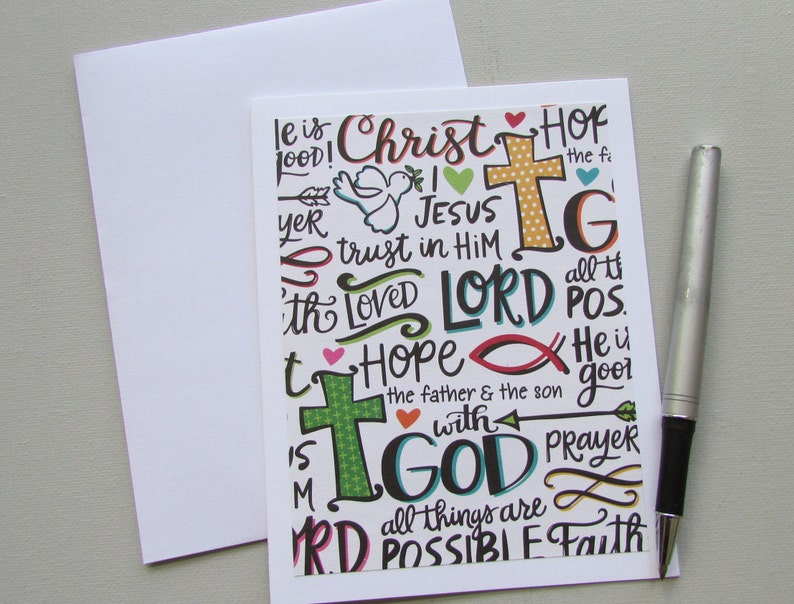 e is Christ HOP
ood! the fa
I ♥
JESUS G
yer trust in HiM
all th
th LOVED LORD POS
t HOPE He i
goo
the father & the son
with
US GOD PRAYER
M
ORD all things are
POSSIBLE Faith